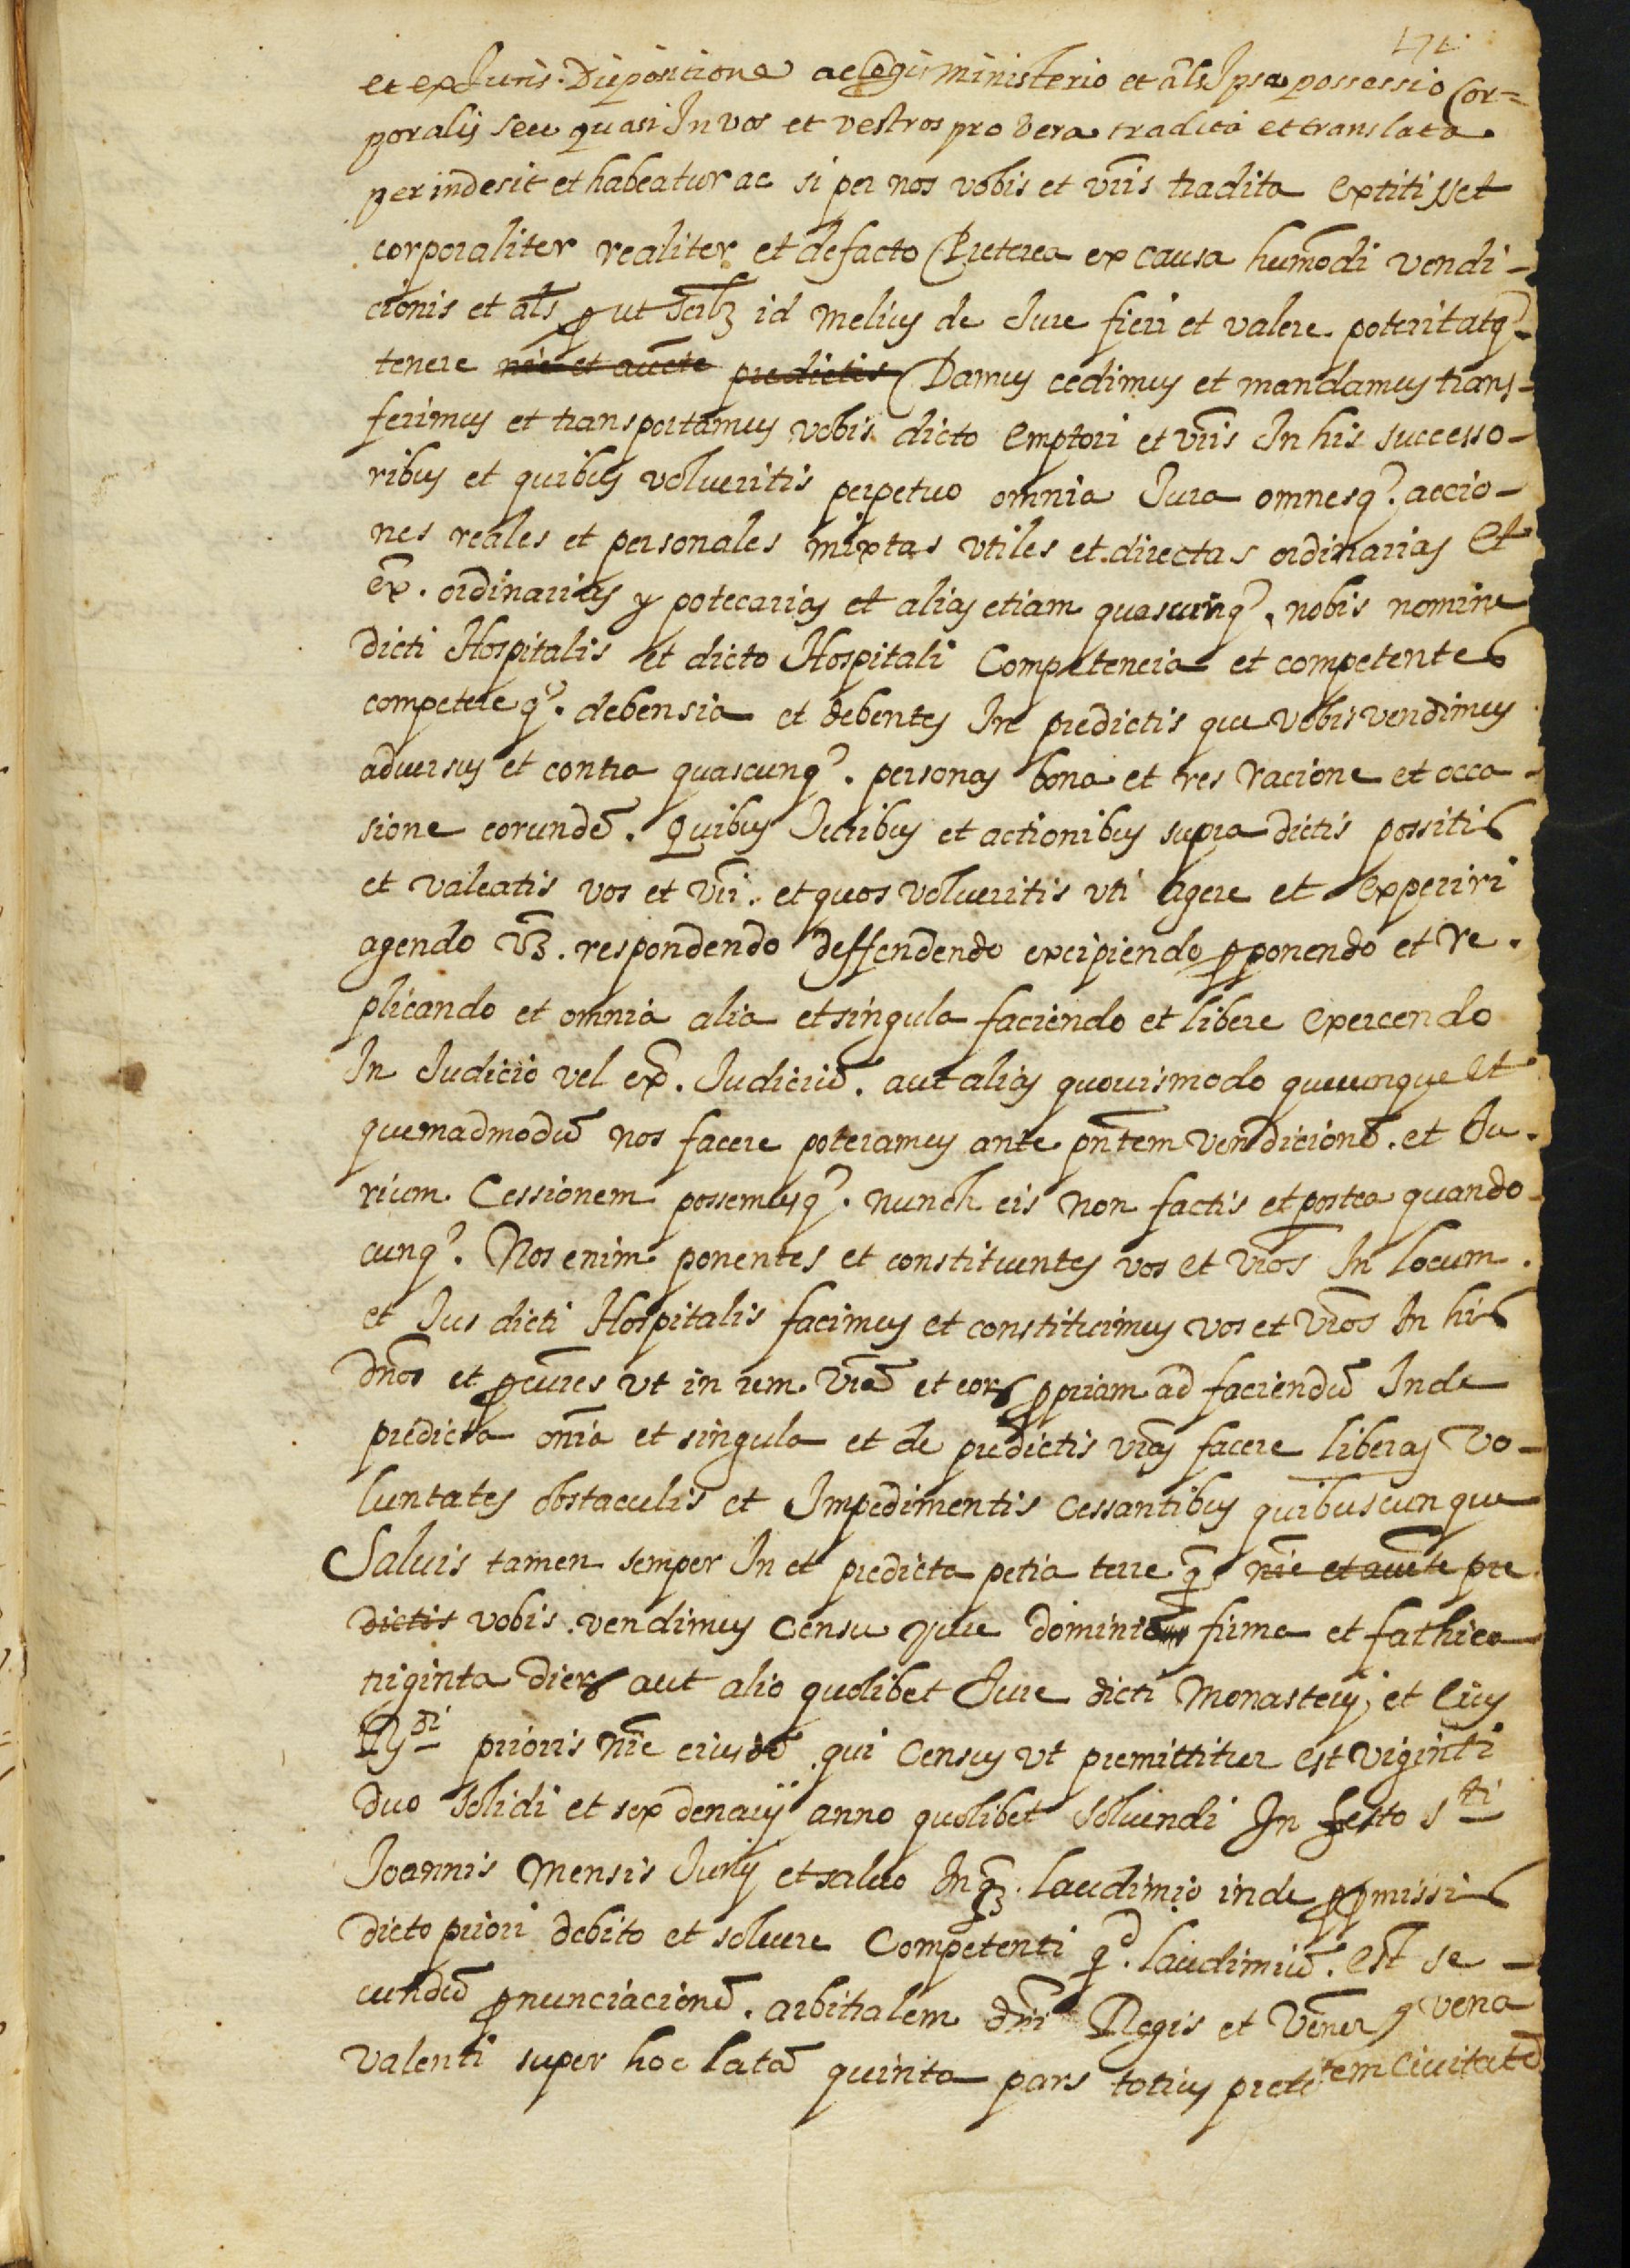 171
et ex Juris Dispositione ac Legis ministerio et als Ipsa possessio Cor=
poralis seu quasi In vos et vestros pro vera tradita et translata
perinde sit et habeatur ac si per nos vobis et vris tradita extitisset
corporaliter realiter et de facto Preterea ex causa humodi vendi-
cionis et als put id melius de Jure fieri et valere poterit atq
tenere nrē et aucte predictis Damus cedimus et mandamus trans-
ferimus et transportamus vobis dicto Emptori et vris In his successo-
ribus et quibus volueritis perpetuo omnia Jura omnesq. accio-
nes reales et personales mixtas vtiles et directas ordinarias et
ex. ordinarias ypotecarias et alias etiam quascunq. nobis nomine
dicti Hospitalis et dicto Hospitali Competencia et competentes
competereq. debensia et debentes In predictis que vobis vendimus
aduersus et contra quascunq. personas bona et res racione et occa-
sione eorundē. Quibus Juribus et actionibus supra dictis possitis
et valeatis vos et vri. et quos volueritis vti agere et experiri
agendo vz. respondendo deffendendo excipiendo pponendo et re.
plicando et omnia alia et singula faciendo et libere exercendo
In Judicio vel ex. Judiciū. aut alias quouismodo quecunque et
quemadmodū nos facere poteramus ante pntem vendicionē. et Ju.
rium Cessionem possemusq. nunch eis non factis et postea quando
cunq. Nos enim ponentes et constituentes vos et vros In locum.
et Jus dicti Hospitalis facimus et constituimus vos et vros In his
dnos et pcures vt in rem vrā et eor ppriam ad faciendū Inde
predicta onia et singula et de predictis vras facere liberas vo-
luntates obstaculis et Impedimentis cessantibus quibuscunque
Saluis tamen semper In et predicta petia terre q nrē et aucte pre
dictis vobis vendimus censu Jure dominio firma et fathica
triginta dier aut alio quolibet Jure dicti Monasterij et Eius
Rdi prioris nrē eiusdē qui census vt premittitur est viginti
duo solidi et sex denarij anno quolibet soluendi In festo sti
Joannis mensis Junij et saluo Inqz. laudimio inde ppmissis
dicto priori debito et soluere Competenti qd. laudimiū. est se-
cundū pnunciacionē. arbitralem dni Regis et Vener
valenti super hoc latā quinta pars totius precii tem Ciuitatē